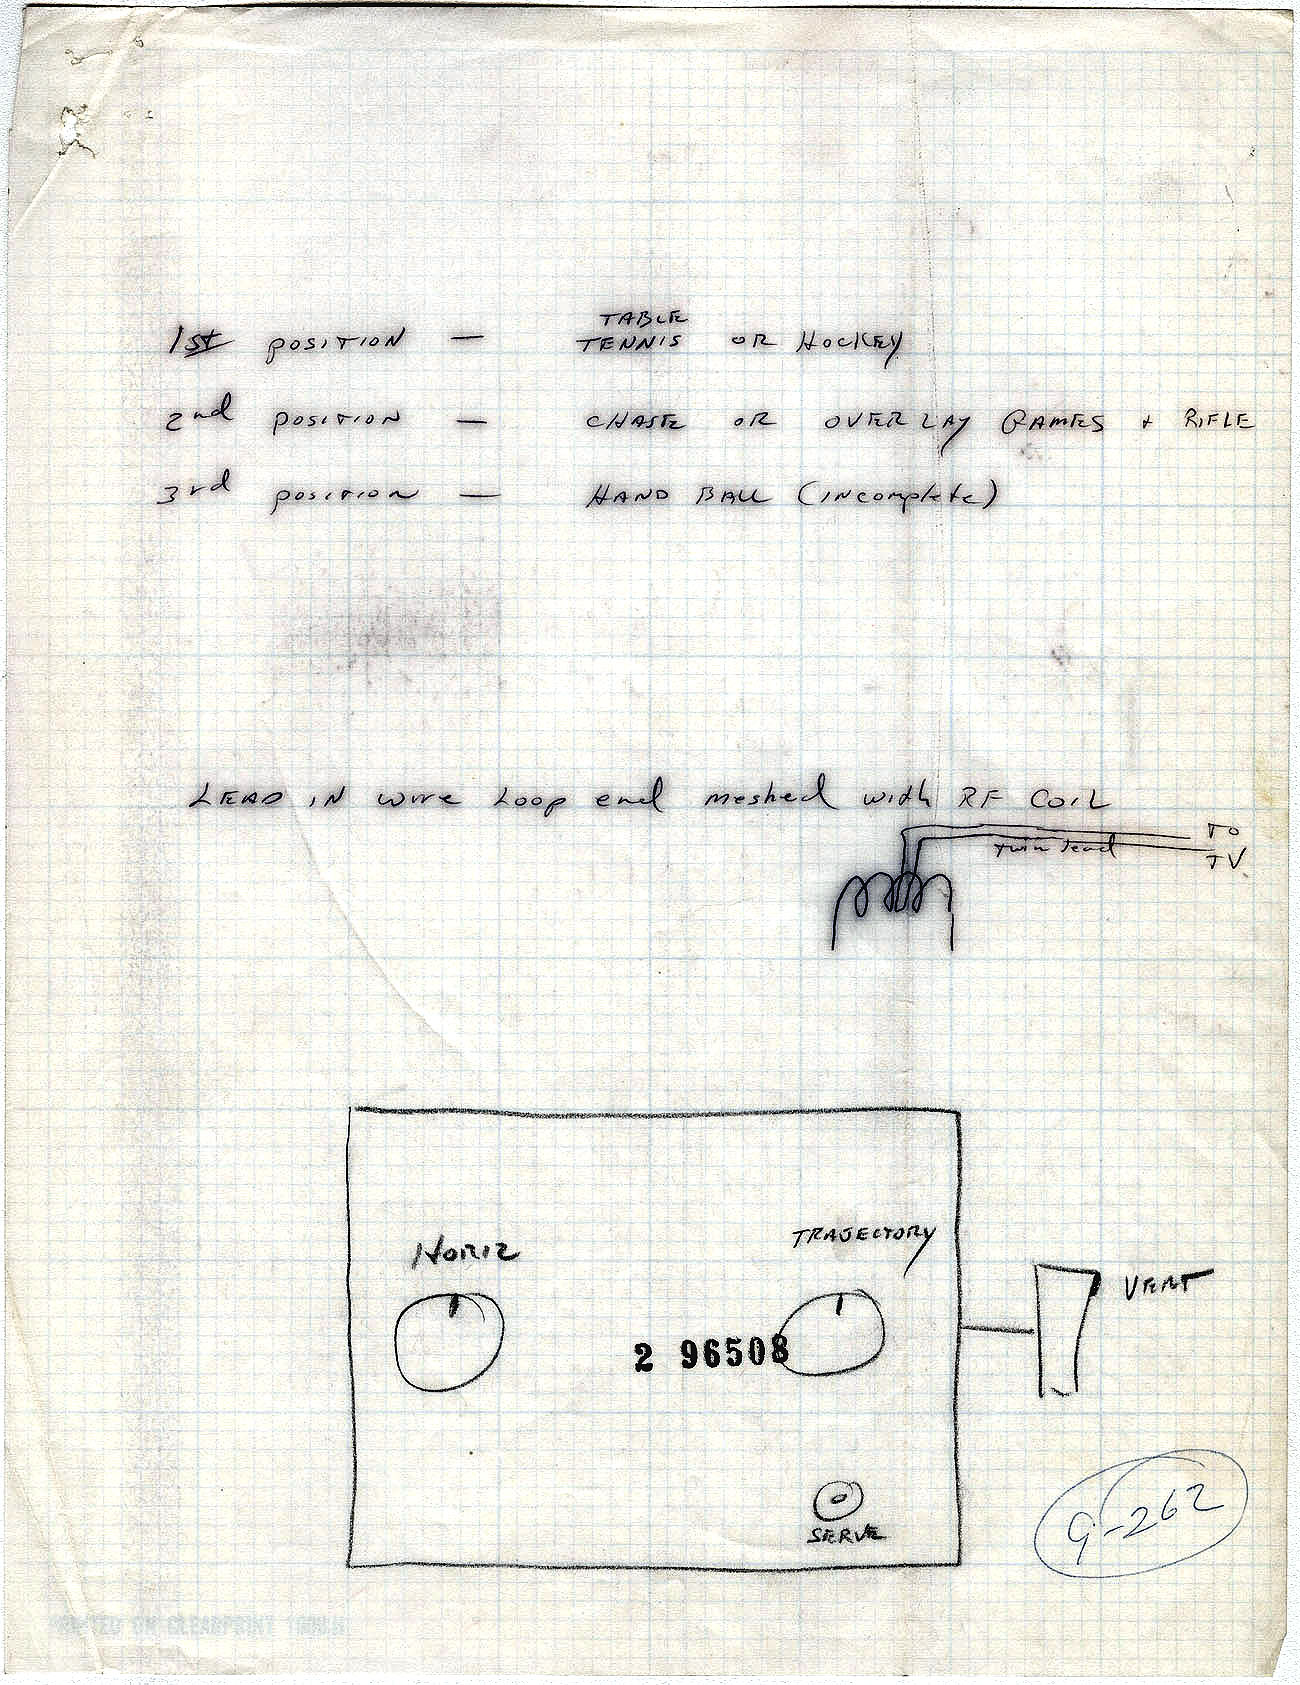 1st position — TABLE TENNIS OR HOCKEY
2nd position — CHASE OR OVERLAY GAMES + RIFLE
3rd position — HAND BALL (INcomplete)
LEAD IN wire Loop end meshed with RF COIL
twin lead
TO
TV
HORIZ
TRAJECTORY
VERT
2 96508
SERVE
G-262
PRINTED ON CLEARPRINT 1000H